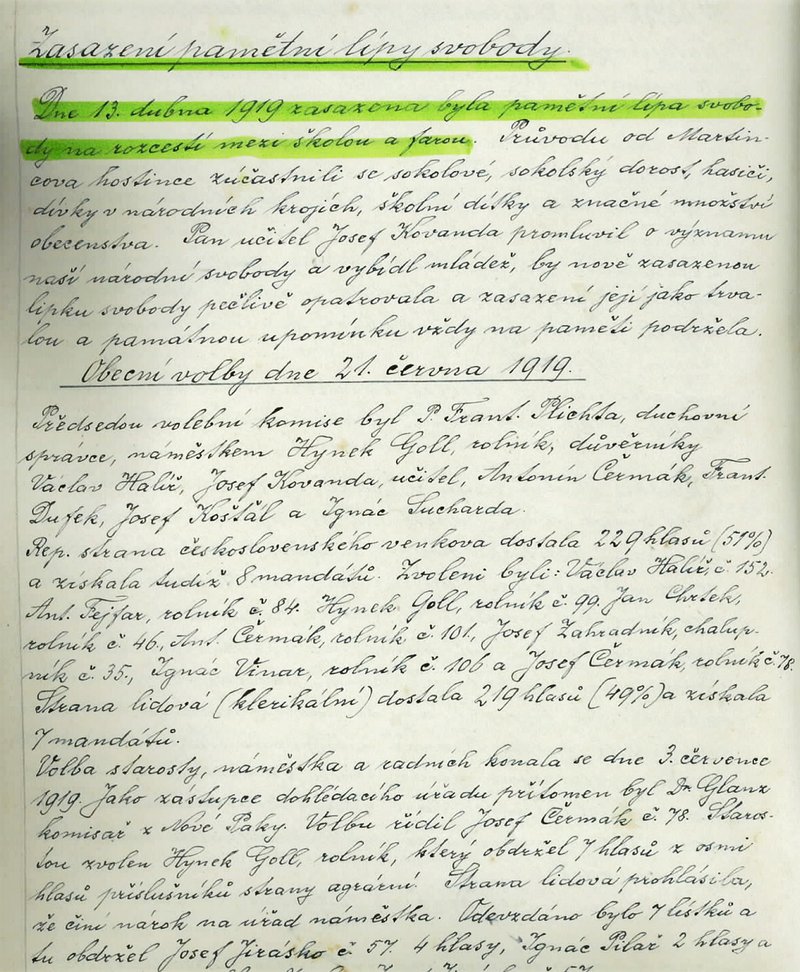 Zasazení pamětní lípy svobody.
Dne 13. dubna 1919 zasazena byla pamětní lípa svobo-
dy na rozcestí mezi školou a farou. Průvodu od Martin-
cova hostince zúčastnili se sokolové, sokolský dorost, hasiči,
dívky v národních krojích, školní dítky a značné množství
obecenstva. Pan učitel Josef Kovanda promluvil o významu
naší národní svobody a vybídl mládež, by nově zasazenou
lípku svobody pečlivě opatrovala a zasazení její jako trva-
lou a památnou upomínku vždy na paměti podržela.
Obecní volby dne 21. června 1919.
Předsedou volební komise byl P. Frant. Plichta, duchovní
správce, náměstkem Hynek Goll, rolník, důvěrníky
Václav Halíř, Josef Kovanda, učitel, Antonín Čermák, Frant.
Dufek, Josef Košťál a Ignác Sucharda.
Rep. strana československého venkova dostala 229 hlasů (51%)
a získala tudíž 8 mandátů. Zvoleni byli: Václav Halíř, č. 152.
Ant. Fejfar, rolník č. 84. Hynek Goll, rolník č. 99. Jan Chrtek,
rolník č. 46., Ant. Čermák, rolník č. 101., Josef Zahradník, chalup-
ník č. 35., Ignác Vinar, rolník č. 106 a Josef Čermák, rolník č. 78.
Strana lidová (klerikální) dostala 219 hlasů (49%) a získala
7 mandátů.
Volba starosty, náměstka a radních konala se dne 3. července
1919. Jako zástupce dohlédacího úřadu přítomen byl Dr. Glanz
komisař z Nové Paky. Volbu řídil Josef Čermák č. 78. Staros-
tou zvolen Hynek Goll, rolník, který obdržel 7 hlasů z osmi
hlasů příslušníků strany agrární. Strana lidová prohlásila,
že činí nárok na úřad náměstka. Odevzdáno bylo 7 lístků a
tu obdržel Josef Jirásko č. 57. 4 hlasy, Ignác Pilař 2 hlasy a